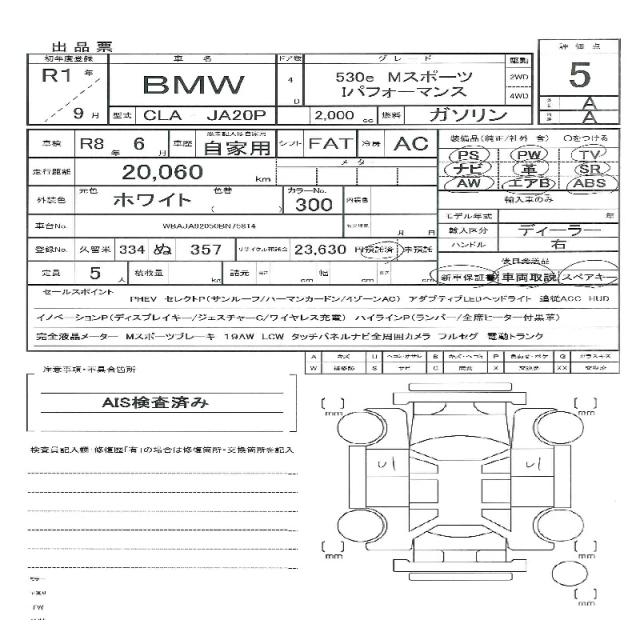 出品票
初年度登録 車名 ドア数 グレード 駆動 評価点
R1年 9月 BMW 4D 530e Mスポーツ 2WD 5
Iパフォーマンス 4WD A
型式 CLA - JA20P 2,000cc 燃料 ガソリン A
車検 R8年 6月 車歴 自家用 シフト FAT 冷房 AC 装備品(純正/社外 含) ○をつける
PS PW TV
走行距離 20,060 km メータ ナビ 革 SR
AW エアB ABS
外装色 元色 ホワイト 色替 ( カラーNo. 300 内装色 輸入車のみ
モデル年式 年
車台No. 月 日 輸入区分 ディーラー
登録No. 久留米 334 ぬ 357 リサイクル預託金 23,630 円預託済 未預託 ハンドル 右
後日発送品
定員 5人 積載量 kg 諸元 cm 幅 cm cm 新車保証書 車両取説 スペアキー
セールスポイント
PHEV セレクトP(サンルーフ/ハーマンカードン/4ゾーンAC) アダプティブLEDヘッドライト 追従ACC HUD
イノベーションP(ディスプレイキー/ジェスチャーC/ワイヤレス充電) ハイラインP(ランバー/全席ヒーター付黒革)
完全液晶メーター Mスポーツブレーキ 19AW LCW タッチパネルナビ全周囲カメラ フルセグ 電動トランク
A キズ U B キズ・ヘコミ P C
W S サビ C X 交換済 XX 交換済
注意事項・不具合箇所
AIS検査済み
検査員記入欄 修復歴「有」の場合は修復箇所・交換箇所を記入
[ ] mm [ ] mm
[ ] mm [ ] mm
[ ] mm